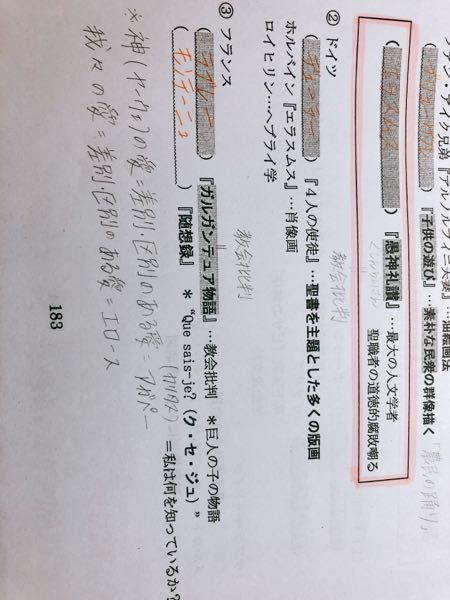 ァン・アイク兄弟『アルノルフィニ夫妻』…油絵画法
(ブリューゲル)『子供の遊び』…素朴な民衆の群像描く
「農民の踊り」
(エラスムス)『愚神礼讃』…最大の人文学者
聖職者の道徳的腐敗嘲る
教会批判
② ドイツ
(デューラー)『4人の使徒』…聖書を主題とした多くの版画
ホルバイン『エラスムス』…肖像画
ロイヒリン…ヘブライ学
教会批判
③ フランス
(ラブレー)『ガルガンチュア物語』…教会批判 *巨人の子の物語
(モンテーニュ)『随想録』 * “Que sais-je?(ク・セ・ジュ)”
=私は何を知っているか?
(カリタス)
※神(ヤーウェ)の愛=差別・区別のある愛=アガペー
我々の愛=差別・区別のある愛=エロース
183